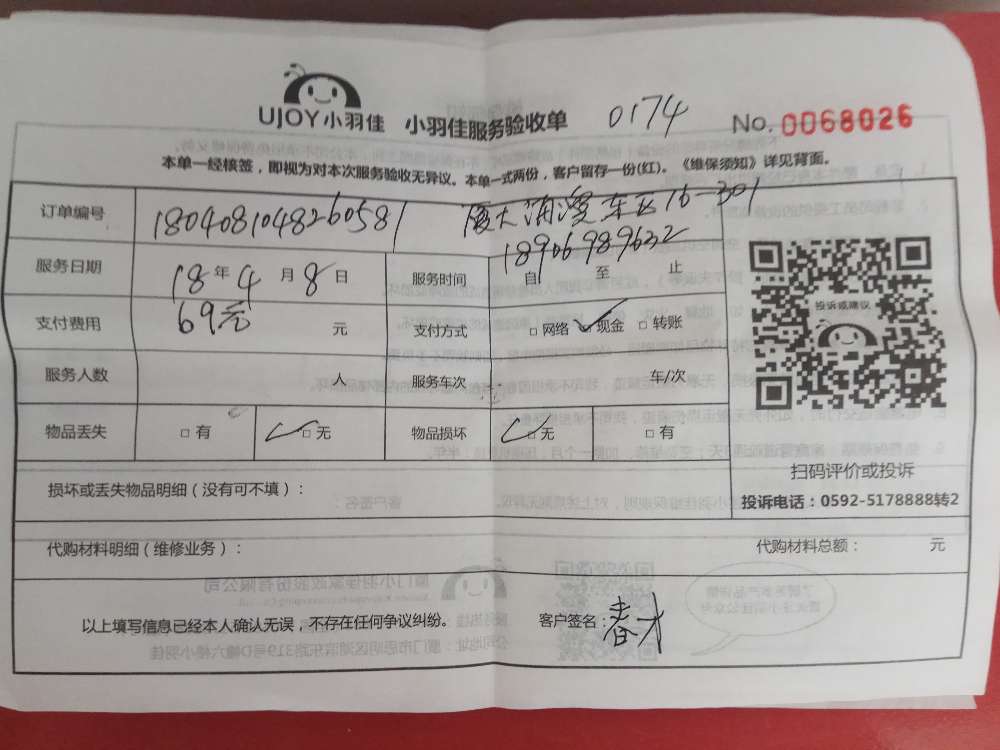 UJOY小羽佳 小羽佳服务验收单 0174 No. 0068026
本单一经核签，即视为对本次服务验收无异议。本单一式两份，客户留存一份(红)。《维保须知》详见背面。
订单编号 1804081048260581 厦大浦 东区16-301
18906989632
服务日期 18年4月8日 服务时间 自 至 止
支付费用 69元 元 支付方式 □网络 ✓现金 □转账
投诉或建议
服务人数 人 服务车次 车/次
物品丢失 □有 ✓□无 物品损坏 ✓□无 □有
扫码评价或投诉
损坏或丢失物品明细（没有可不填）：
投诉电话：0592-5178888转2
代购材料明细（维修业务）： 代购材料总额： 元
以上填写信息已经本人确认无误，不存在任何争议纠纷。 客户签名：春